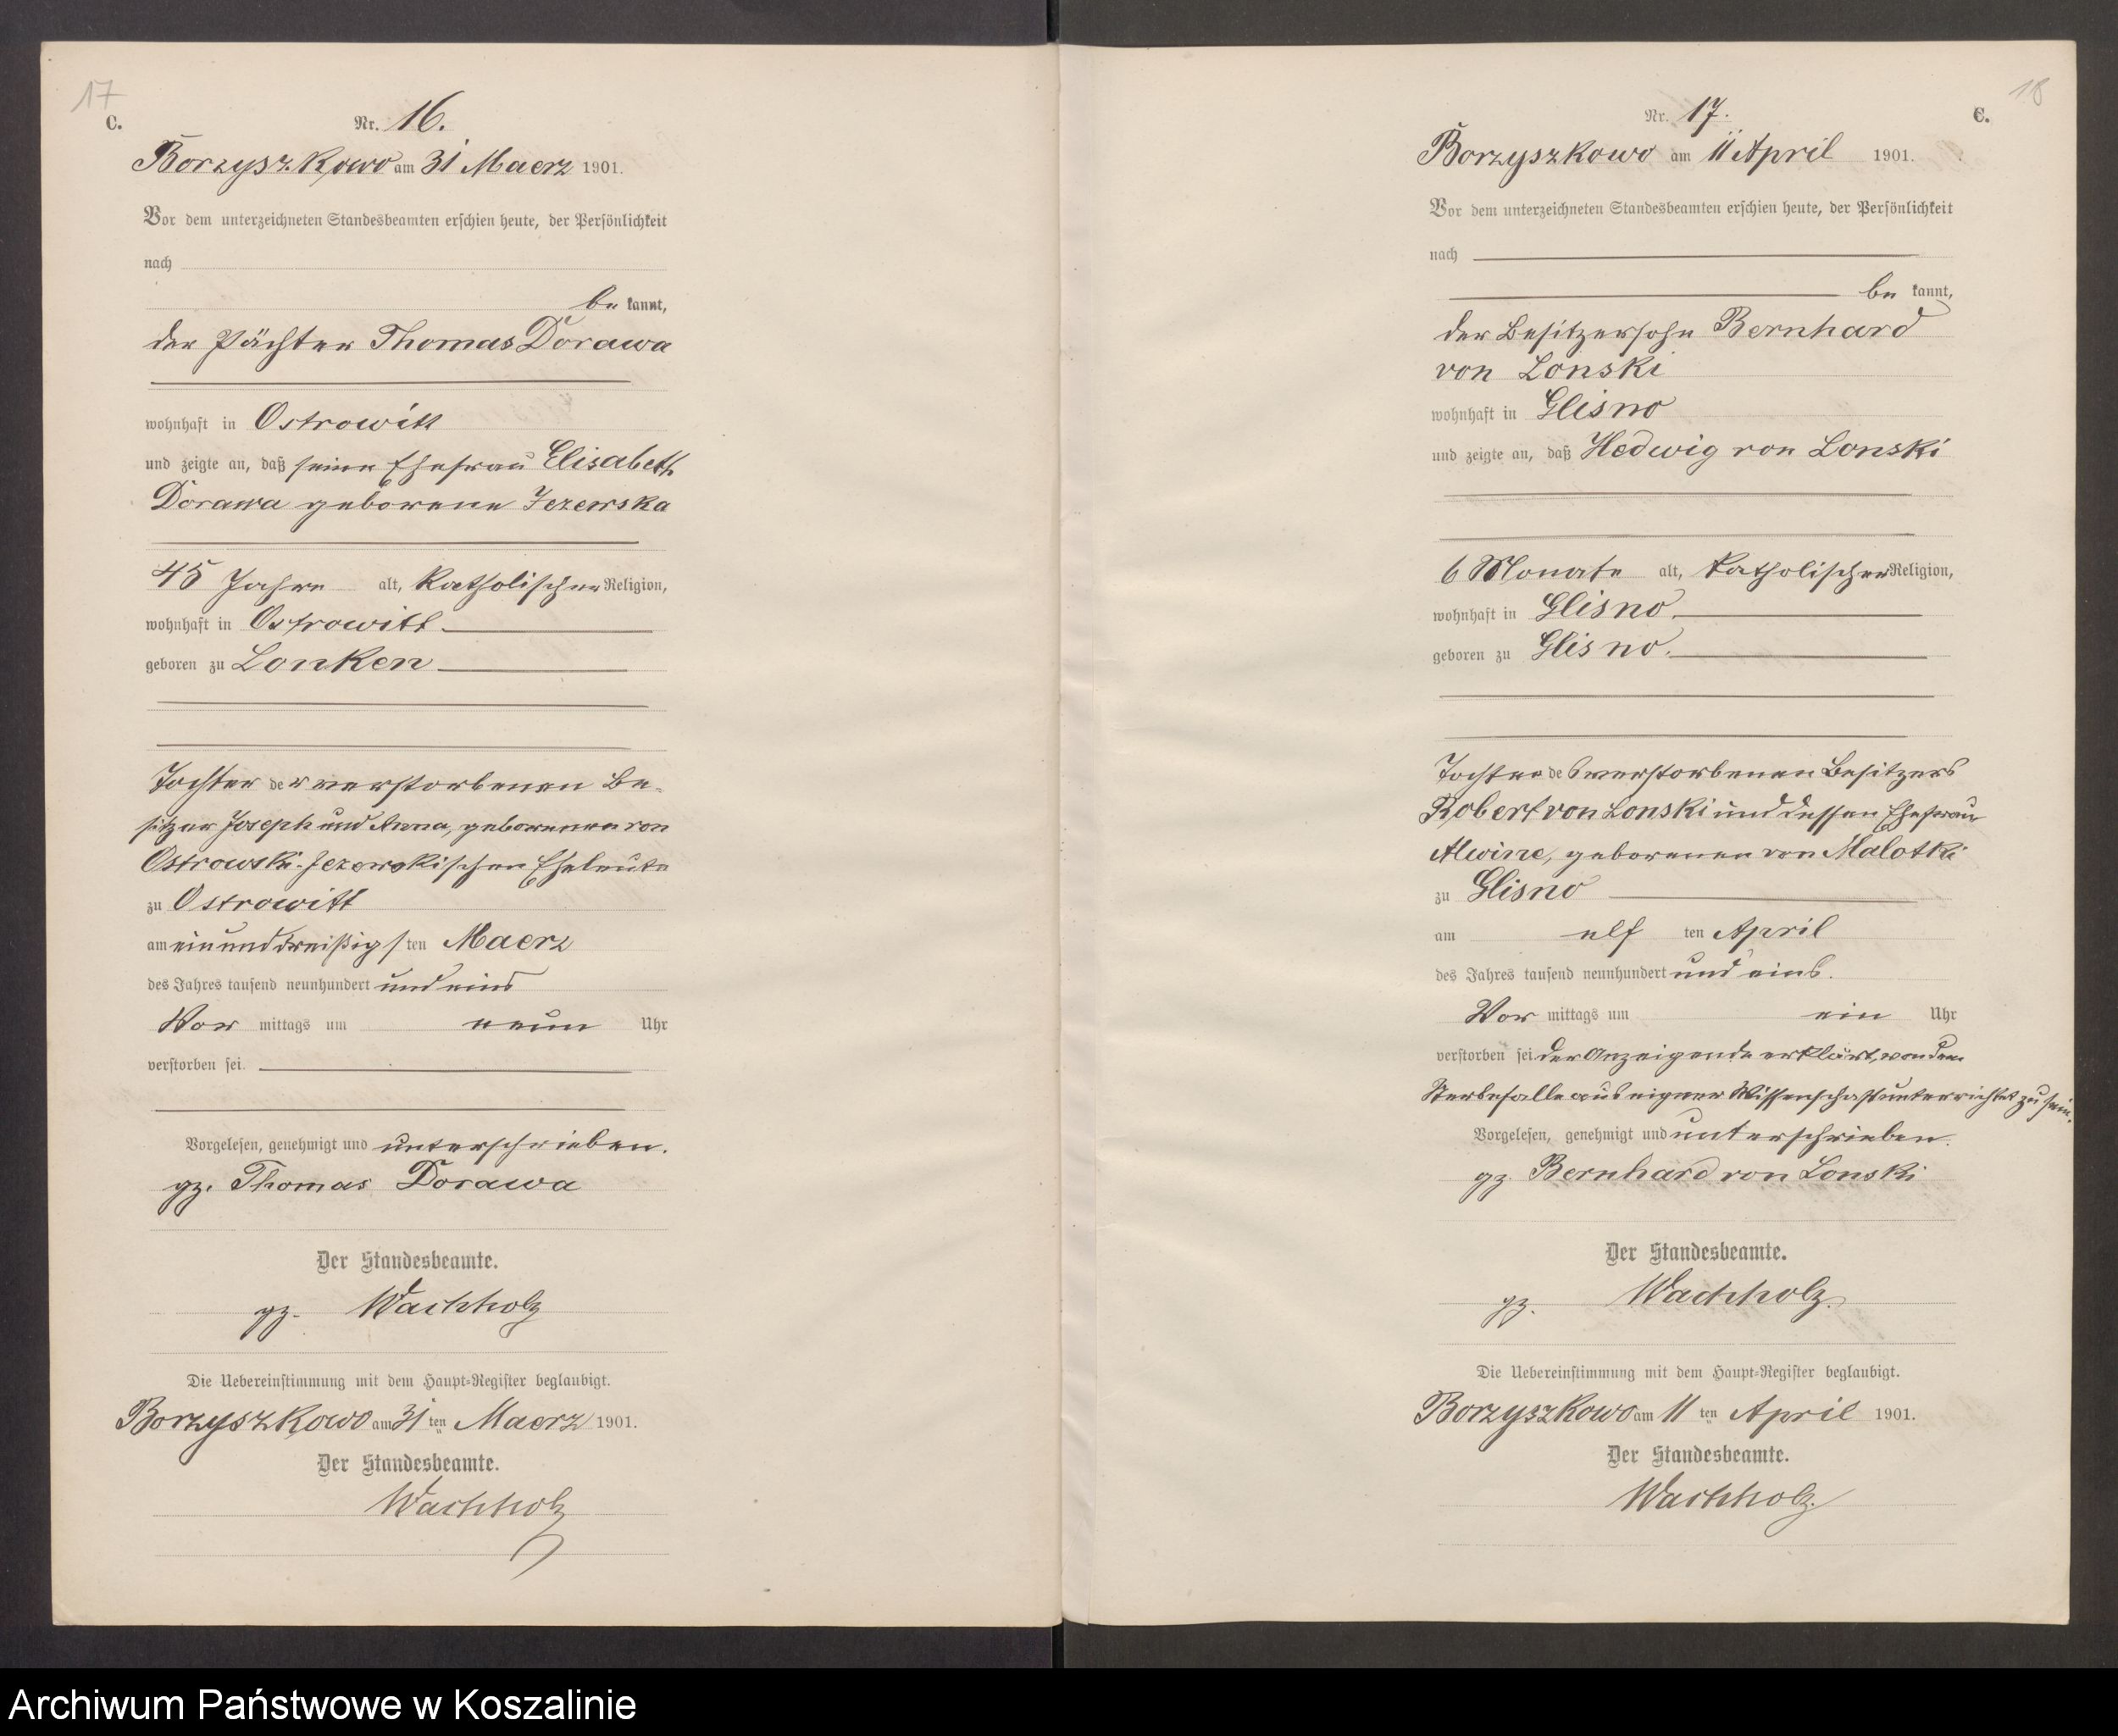 17
C.
Nr. 16.
Borzyszkowo am 31 Maerz 1901.
Vor dem unterzeichneten Standesbeamten erschien heute, der Persönlichkeit
nach
be kannt,
der Pächter Thomas Dorawa
wohnhaft in Ostrowitt
und zeigte an, daß seine Ehefrau Elisabeth
Dorawa geborene Jezewska
45 Jahre alt, katholischer Religion,
wohnhaft in Ostrowitt
geboren zu Lonken
Tochter der verstorbenen Be-
sitzer Joseph und Anna, geborenen von
Ostrowski-Jezewskischen Eheleute
zu Ostrowitt
am einunddreißigs ten Maerz
des Jahres tausend neunhundert und eins
Vor mittags um neun Uhr
verstorben sei.
Vorgelesen, genehmigt und unterschrieben.
gz. Thomas Dorawa
Der Standesbeamte.
gz. Wachholz
Die Uebereinstimmung mit dem Haupt-Register beglaubigt.
Borzyszkowo am 31 ten Maerz 1901.
Der Standesbeamte.
Wachholz
18
C.
Nr. 17.
Borzyszkowo am 11 April 1901.
Vor dem unterzeichneten Standesbeamten erschien heute, der Persönlichkeit
nach
be kannt,
der Besitzersohn Bernhard
von Lonski
wohnhaft in Glisno
und zeigte an, daß Hedwig von Lonski
6 Monate alt, katholischer Religion,
wohnhaft in Glisno.
geboren zu Glisno.
Tochter des verstorbenen Besitzers
Robert von Lonski und dessen Ehefrau
Alwine, geborenen von Malotki
zu Glisno
am elf ten April
des Jahres tausend neunhundert und eins.
Vor mittags um ein Uhr
verstorben sei. der Anzeigende erklärt, von dem
Sterbefalle aus eigner Wissenschaft unterrichtet zu sein.
Vorgelesen, genehmigt und unterschrieben.
gz. Bernhard von Lonski
Der Standesbeamte.
gz. Wachholz.
Die Uebereinstimmung mit dem Haupt-Register beglaubigt.
Borzyszkowo am 11 ten April 1901.
Der Standesbeamte.
Wachholz.
Archiwum Państwowe w Koszalinie